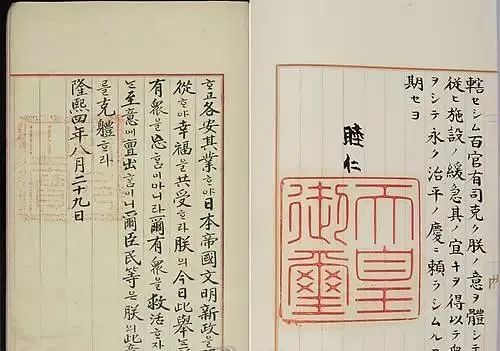 轄セシム百官有司克ク朕ノ意ヲ體シテ
從ヒ施設ノ緩急其ノ宜キヲ得以テ衆
ヲシテ永ク治平ノ慶ニ頼ラシムル
期セヨ
睦仁
天皇
御璽
ᄒᆞ고各安其業ᄒᆞ야日本帝國文明新政을
從ᄒᆞ야幸福을共受ᄒᆞ라朕의今日此擧는
有衆을忘홈이아니라爾有衆을救活ᄒᆞ자
는至意에亶出홈이니爾臣民等은朕의此意
를克體ᄒᆞ라
隆熙四年八月二十九日